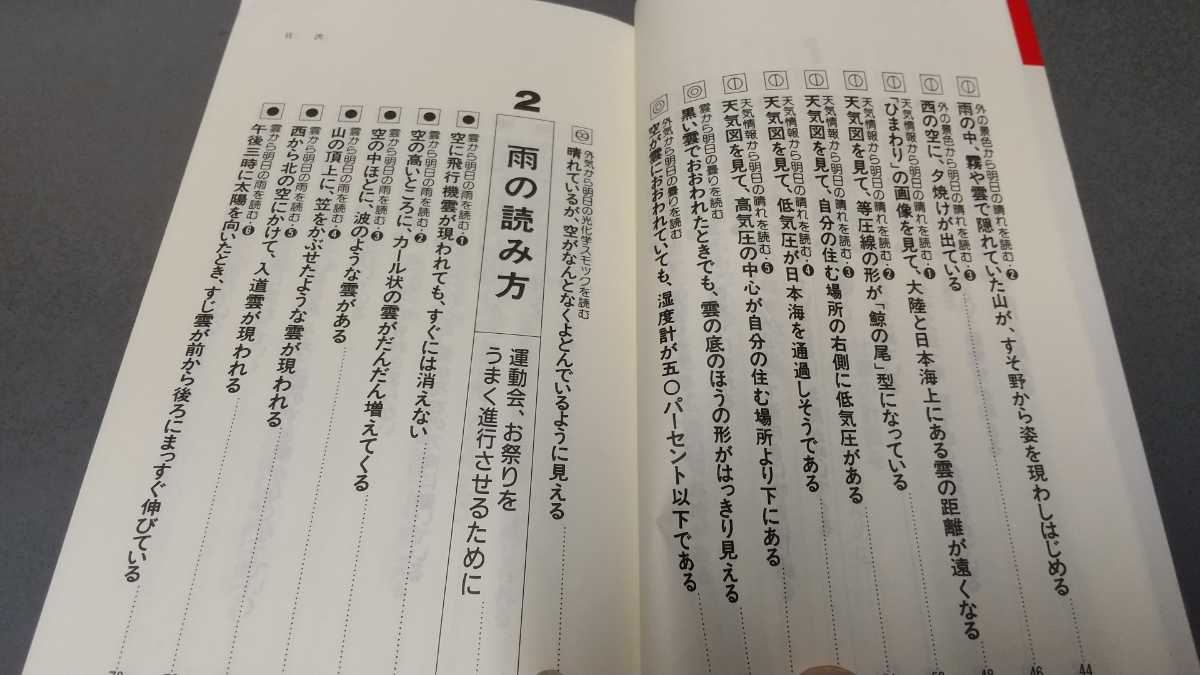 外の景色から明日の晴れを読む・❷
雨の中、霧や雲で隠れていた山が、すそ野から姿を現わしはじめる
44
外の景色から明日の晴れを読む・❸
西の空に、夕焼けが出ている
46
天気情報から明日の晴れを読む・❶
「ひまわり」の画像を見て、大陸と日本海上にある雲の距離が遠くなる
48
天気情報から明日の晴れを読む・❷
天気図を見て、等圧線の形が「鯨の尾」型になっている
天気情報から明日の晴れを読む・❸
天気図を見て、自分の住む場所の右側に低気圧がある
天気情報から明日の晴れを読む・❹
天気図を見て、低気圧が日本海を通過しそうである
天気情報から明日の晴れを読む・❺
天気図を見て、高気圧の中心が自分の住む場所より下にある
雲から明日の曇りを読む
黒い雲でおおわれたときでも、雲の底のほうの形がはっきり見える
外気から明日の曇りを読む
空が雲におおわれていても、湿度計が五〇パーセント以下である
外気から明日の光化学スモッグを読む
晴れているが、空がなんとなくよどんでいるように見える
2
雨の読み方
運動会、お祭りを
うまく進行させるために
雲から明日の雨を読む・❶
空に飛行機雲が現われても、すぐには消えない
雲から明日の雨を読む・❷
空の高いところに、カール状の雲がだんだん増えてくる
雲から明日の雨を読む・❸
空の中ほどに、波のような雲がある
雲から明日の雨を読む・❹
山の頂上に、笠をかぶせたような雲が現われる
雲から明日の雨を読む・❺
西から北の空にかけて、入道雲が現われる
雲から明日の雨を読む・❻
午後三時に太陽を向いたとき、すじ雲が前から後ろにまっすぐ伸びている
目次